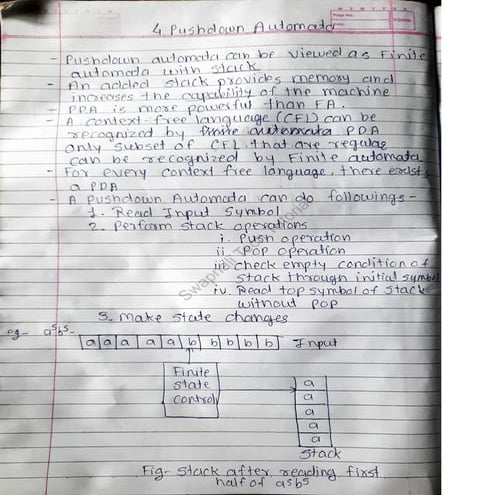 4. Pushdown Automata
- Pushdown automata can be viewed as Finite
automata with stack
- An added stack provides memory and
increases the capability of the machine
- PDA is more powerful than FA.
- A context-free language (CFL) can be
recognized by finite automata PDA
only subset of CFL that are regular
can be recognized by Finite automata
- For every context free language, there exists
a PDA
- A Pushdown Automata can do followings -
1. Read Input Symbol
2. Perform stack operations
i. Push operation
ii. Pop operation
iii. check empty condition of
stack through initial symbol
iv. Read top symbol of stack
without pop
3. make state changes
eg- a⁵b⁵-
a a a a a b b b b b Input
Finite
state
control
a
a
a
a
a
Stack
Fig- stack after reading first
half of a⁵b⁵